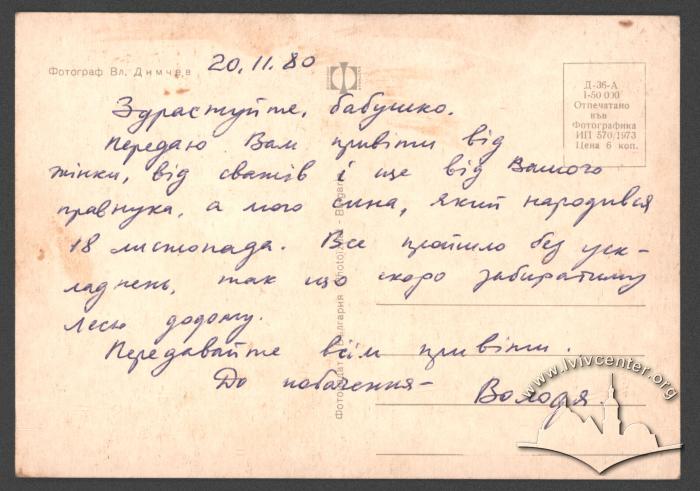 Фотограф Вл. Димчев
20.11.80
Д-36-А
1-50 000
Отпечатано
във
Фотографика
ИП 570/1973
Цена 6 коп.
Здраствуйте, бабушко.
Передаю Вам привіти від
жінки, від сватів і ще від Вашого
правнука, а мого сина, який народився
18 листопада. Все пройшло без уск-
ладнень, так що скоро забиратиму
Лесю додому.
Передавайте всім привіти.
До побачення-
Володя.
Фотоиздат България
Photo
Bulgar
www.lvivcenter.org